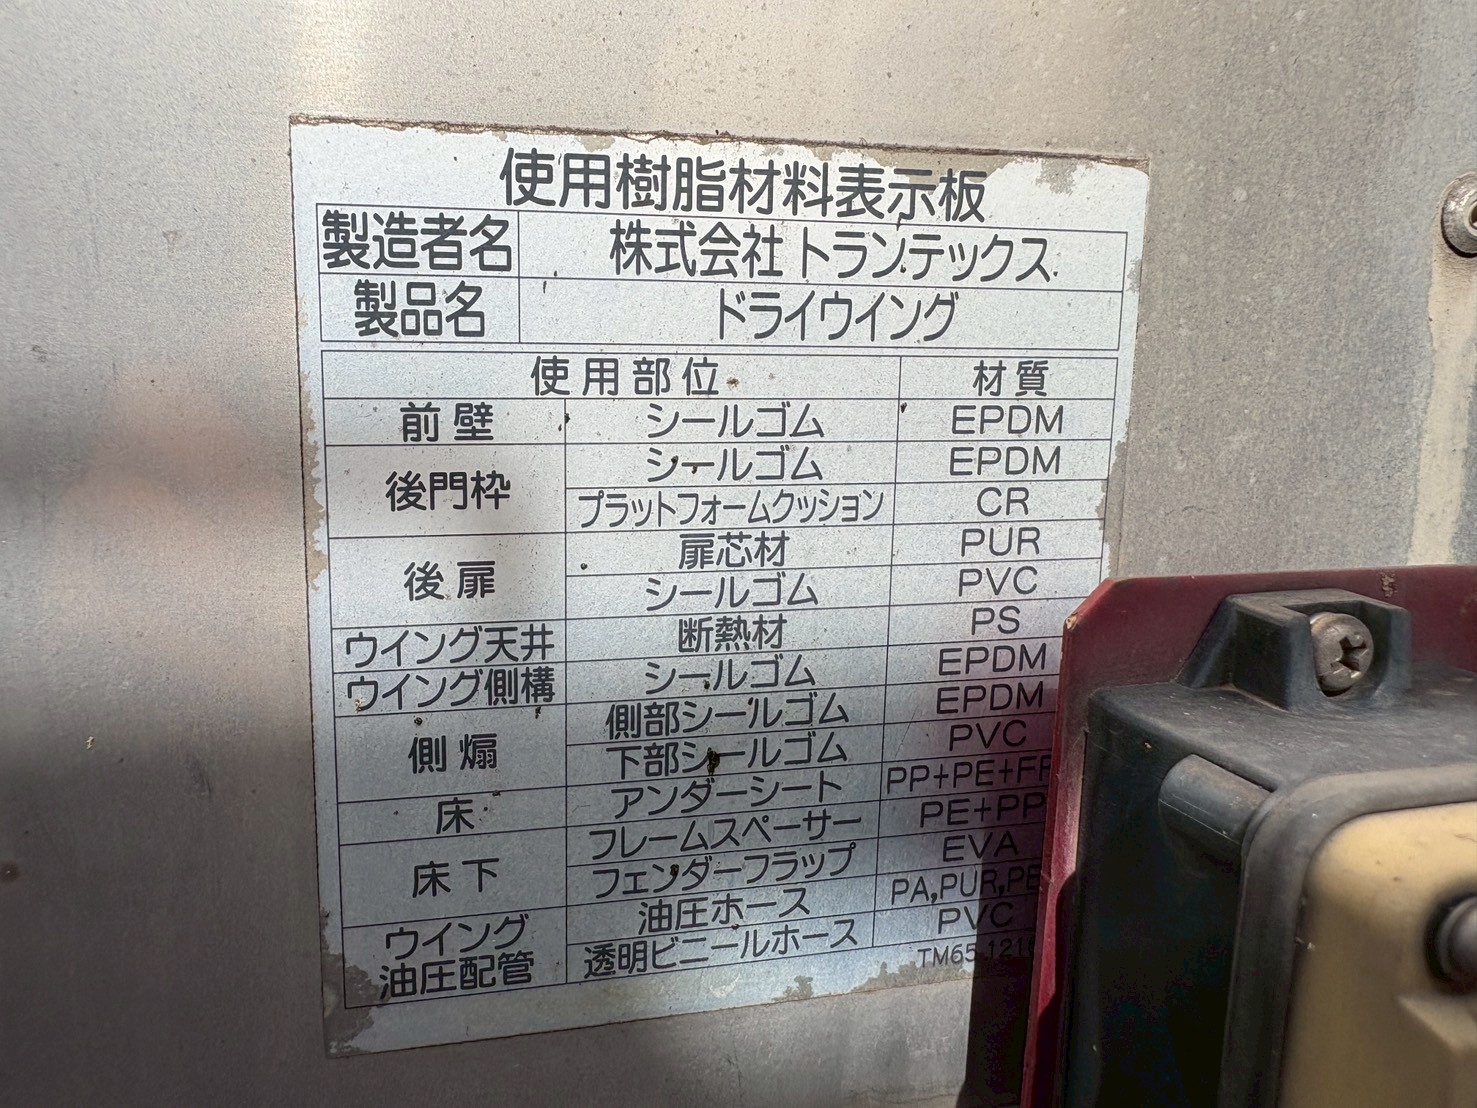 使用樹脂材料表示板
製造者名 株式会社トランテックス
製品名 ドライウイング
使用部位 材質
前壁 シールゴム EPDM
後門枠 シールゴム EPDM
プラットフォームクッション CR
後扉 扉芯材 PUR
シールゴム PVC
ウイング天井 断熱材 PS
ウイング側構 シールゴム EPDM
側煽 側部シールゴム EPDM
下部シールゴム PVC
床 アンダーシート PP+PE+
床下 フレームスペーサー PE+PP
フェンダーフラップ EVA
ウイング油圧配管 油圧ホース PA,PUR,
透明ビニールホース PVC